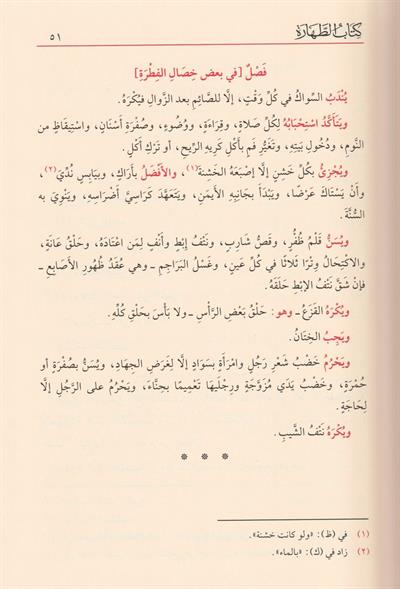 كِتَابُ الطَّهَارَةِ
٥١
فَصْلٌ [في بعض خِصَالِ الفِطْرَةِ]
يُنْدَبُ السِّواكُ في كُلِّ وَقْتٍ، إلَّا للصَّائِمِ بعد الزَّوالِ فيُكْرَهُ.
ويَتَأَكَّدُ اسْتِحْبَابُهُ لِكُلِّ صَلاةٍ، وقِرَاءَةٍ، ووُضُوءٍ، وصُفْرَةِ أَسْنَانٍ، واسْتِيقَاظٍ من
النَّومِ، ودُخُولِ بَيتِهِ، وتَغَيُّرِ فَمٍ بأَكْلِ كَرِيهِ الرِّيحِ، أو تَرْكِ أَكْلٍ.
ويُجْزِئُ بكُلِّ خَشِنٍ إلَّا إصْبَعَهُ الخَشِنَةَ(١)، والأَفْضَلُ بأَرَاكٍ، وبيَابِسٍ نُدِّيَ(٢)،
وأَنْ يَسْتَاكَ عَرْضًا، ويَبْدَأَ بجَانِبِهِ الأَيمَنِ، ويَتَعَهَّدَ كَرَاسِيَّ أَضْرَاسِهِ، ويَنْوِيَ به
السُّنَّةَ.
ويُسَنُّ قَلْمُ ظُفْرٍ، وقَصُّ شَارِبٍ، ونَتْفُ إبْطٍ وأَنْفٍ لِمَنِ اعْتَادَهُ، وحَلْقُ عَانَةٍ،
والاكْتِحَالُ وِتْرًا ثَلَاثًا في كُلِّ عَينٍ، وغَسْلُ البَرَاجِمِ ـ وهي عُقَدُ ظُهُورِ الأَصَابِعِ ـ
فإنْ شَقَّ نَتْفُ الإبْطِ حَلَقَهُ.
ويُكْرَهُ القَزَعُ ـ وهو: حَلْقُ بَعْضِ الرَّأْسِ ـ ولا بَأْسَ بحَلْقِ كُلِّهِ.
ويَجِبُ الخِتَانُ.
ويَحْرُمُ خَضْبُ شَعْرِ رَجُلٍ وامْرَأَةٍ بسَوَادٍ إلَّا لِغَرَضِ الجِهَادِ، ويُسَنُّ بصُفْرَةٍ أو
حُمْرَةٍ، وخَضْبُ يَدَي مُزَوَّجَةٍ ورِجْلَيهَا تَعْمِيمًا بحِنَّاءٍ، ويَحْرُمُ على الرَّجُلِ إلَّا
لِحَاجَةٍ.
ويُكْرَهُ نَتْفُ الشَّيبِ.
* * *
(١) في (ظ): «ولو كانت خشنة».
(٢) زاد في (ك): «بالماء».